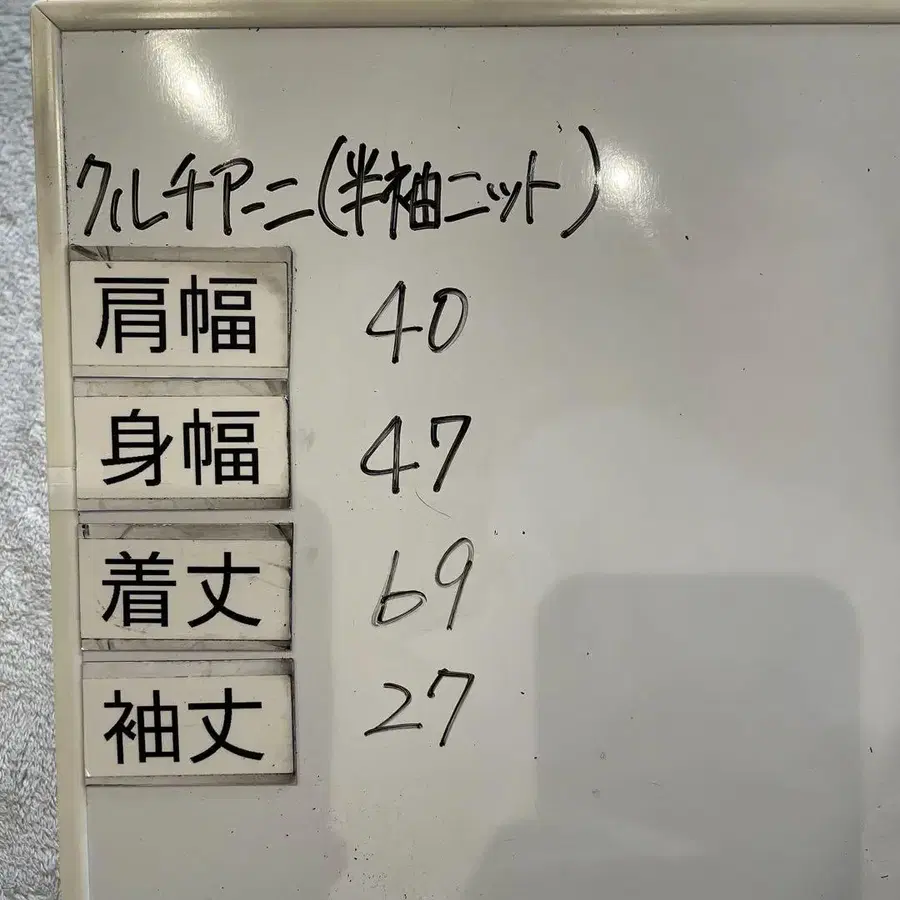 クルチアーニ(半袖ニット)
肩幅 40
身幅 47
着丈 69
袖丈 27